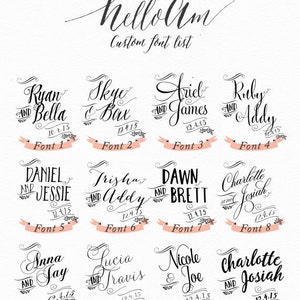 helloAm
Custom font list
Ryan
AND
Bella
10.4.15
Font 1
Skye
&
Bax
12.9.18
Font 2
Ariel
AND
James
12.4.15
Font 3
Ruby
AND
Addy
Font 4
DANIEL
AND
JESSIE
12.4.15
Font 5
Trisha
and
Addy
12.4.15
Font 6
DAWN
AND
BRETT
12.4.15
Font 7
Charlotte
and
Josiah
12.4.15
Font 8
Anna
AND
Jay
Lucia
and
Travis
12.4.15
Nicole
&
Joe
12.4.18
Charlotte
AND
Josiah
12.4.15